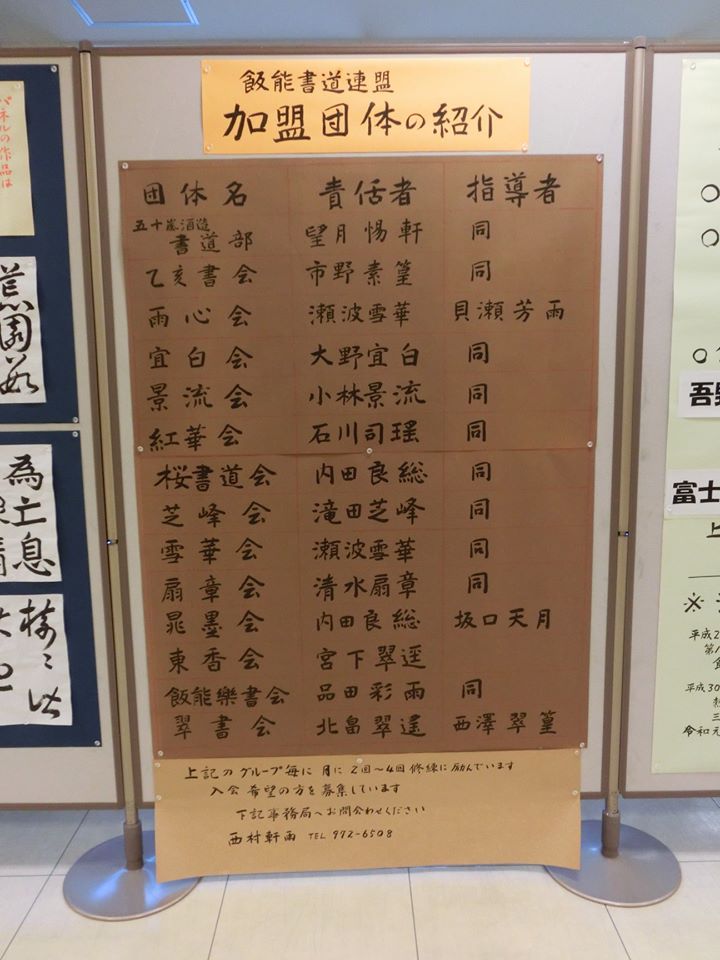 飯能書道連盟
加盟団体の紹介
団体名 責任者 指導者
五十嵐酒造
書道部 望月惕軒 同
乙亥書会 市野素篁 同
雨心会 瀬波雪華 貝瀬芳雨
宜白会 大野宜白 同
景流会 小林景流 同
紅華会 石川司瑤 同
桜書道会 内田良総 同
芝峰会 滝田芝峰 同
雪華会 瀬波雪華 同
扇章会 清水扇章 同
晁墨会 内田良総 坂口天月
東香会 宮下翠逕
飯能樂書会 品田彩雨 同
翠書会 北畠翠遙 西澤翠篁
上記のグループ毎に月に2回~4回修練に励んでいます
入会希望の方を募集しています
下記事務局へお問合わせください
西村軒雨 TEL 972-6508
パネルの作品は
為亡息
吾野
富士
上
※
平成2
第1
平成30
三
令和元